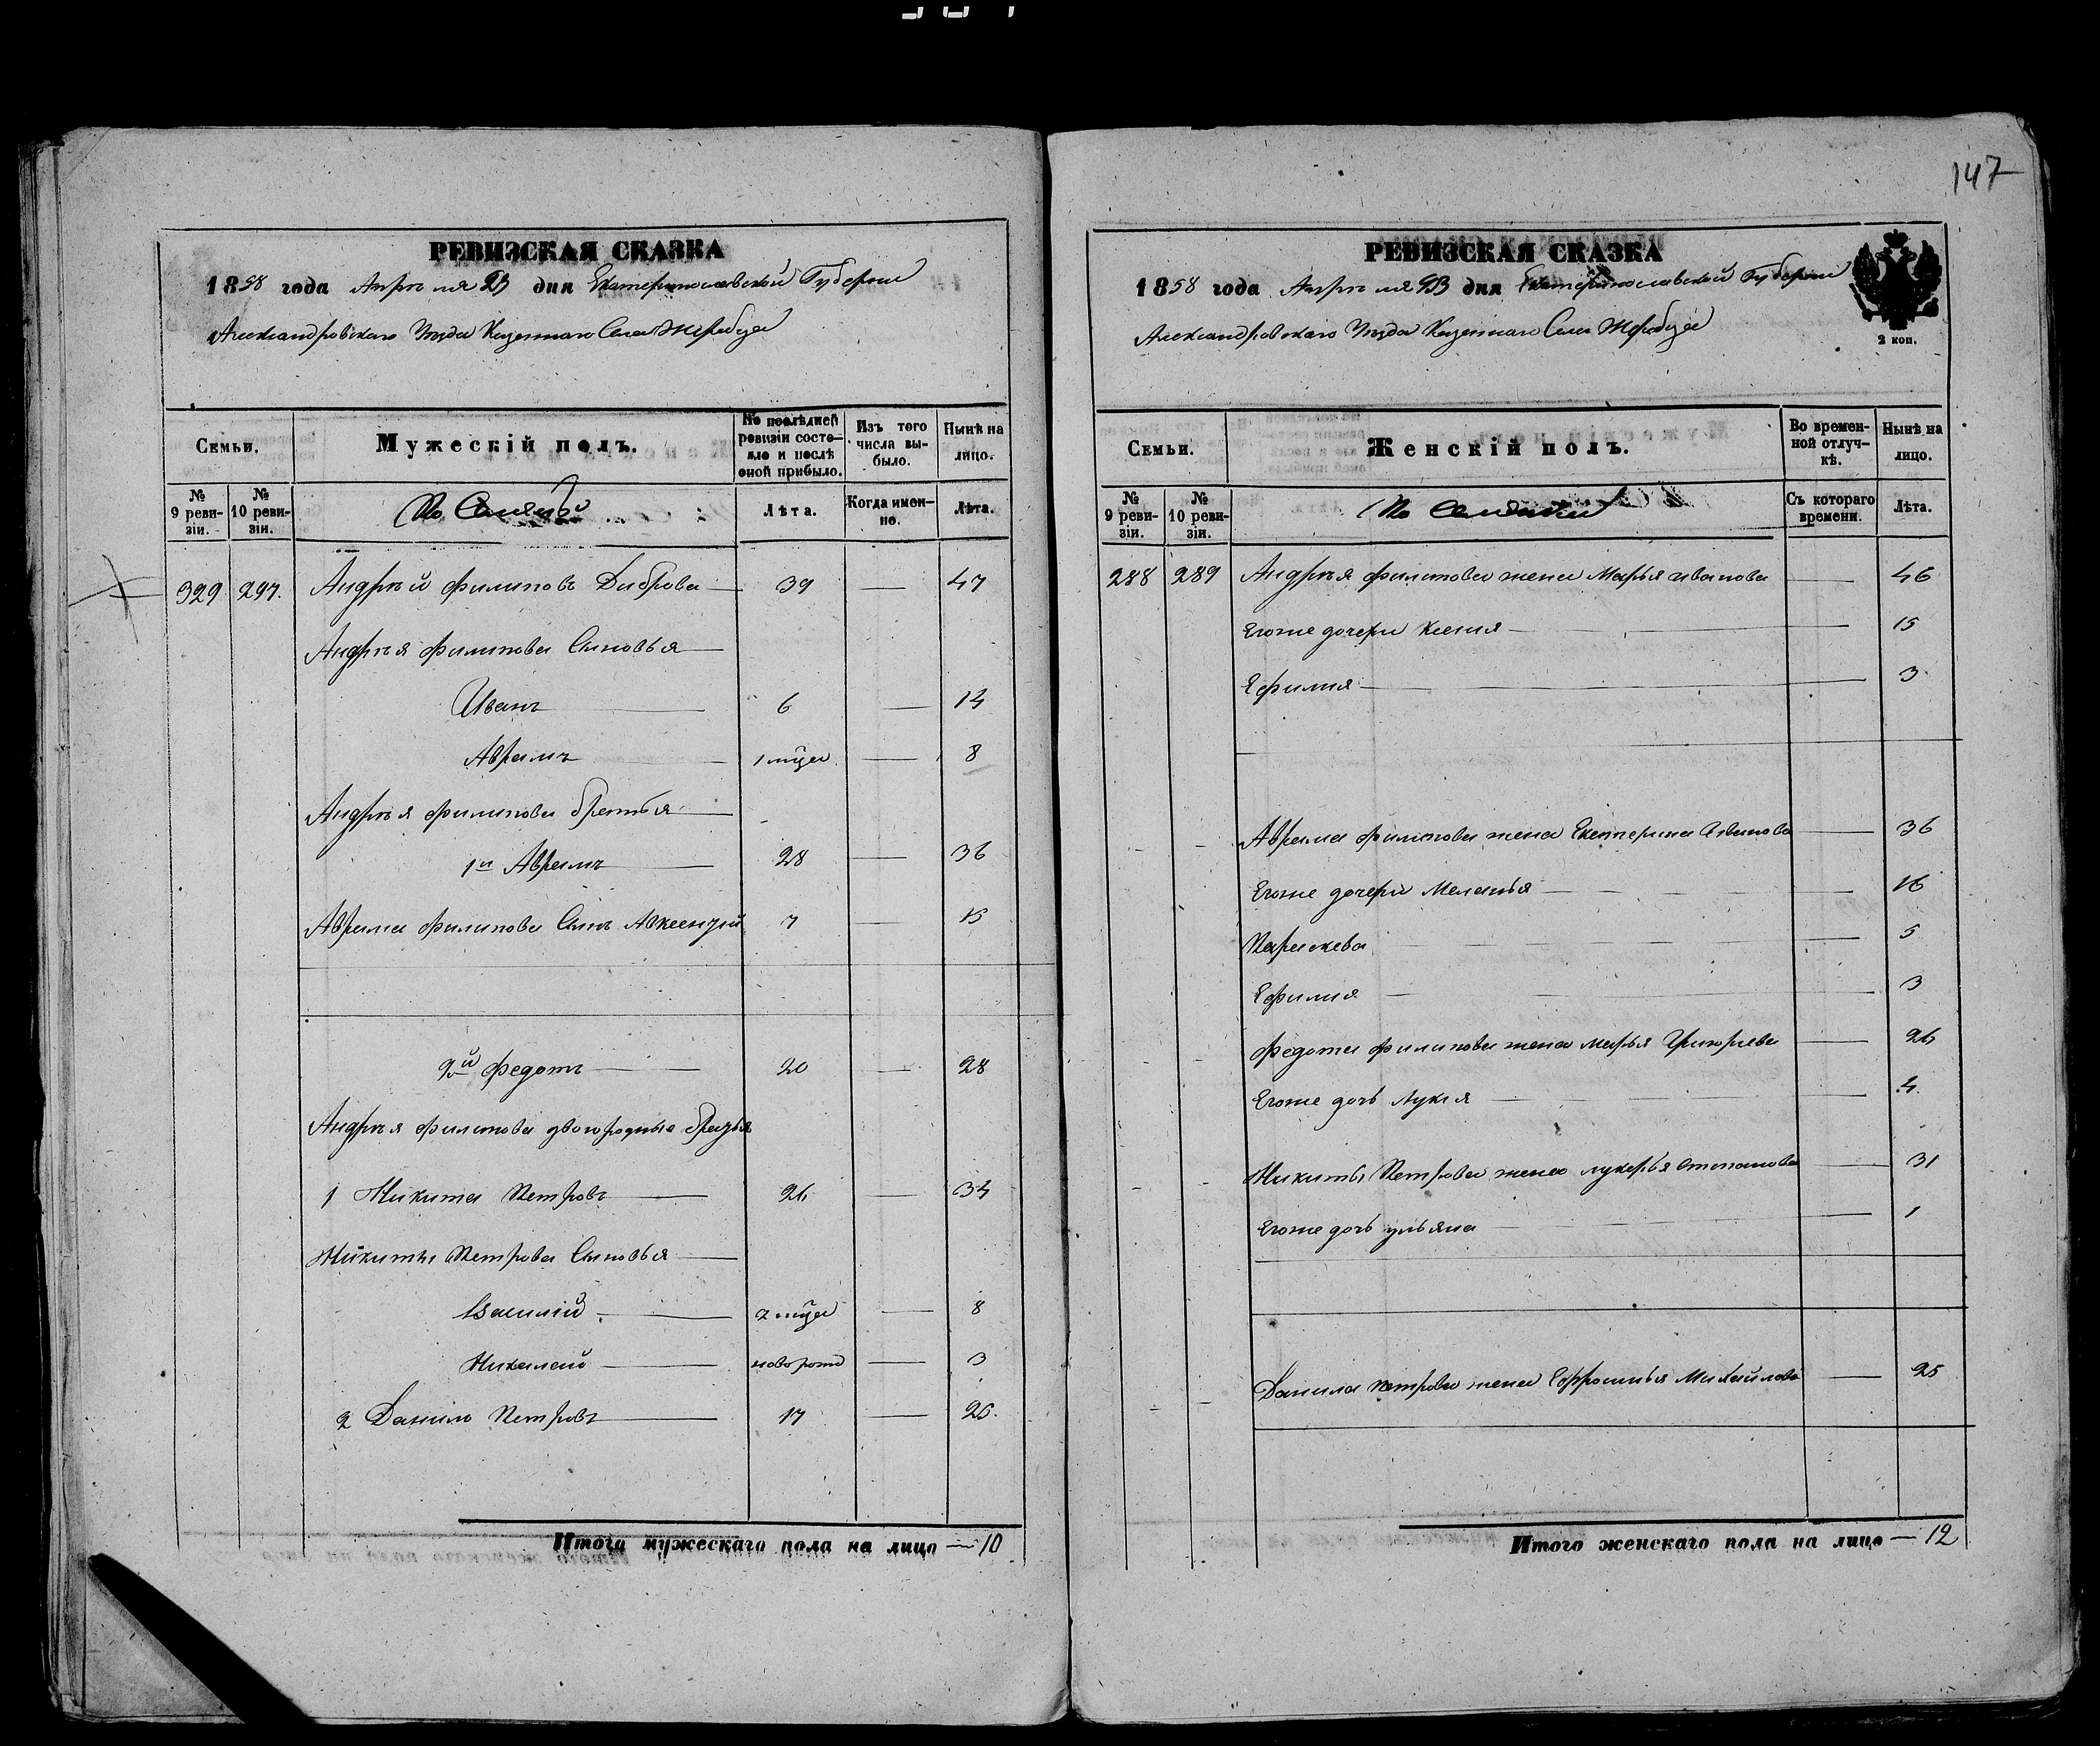 147
РЕВИЗСКАЯ СКАЗКА
1858 года Апрѣля 23 дня Екатеринославской Губернии
Александровскаго Уѣзда Казеннаго Села Жеребца
Семьи.
Мужескій полъ.
По послѣдней ревизіи состояло и послѣ оной прибыло.
Изъ того числа выбыло.
Нынѣ на лицо.
№ 9 ревизіи.
№ 10 ревизіи.
Лѣта.
Когда именно.
Лѣта.
329 297. Андрѣй Филиповъ Диброва — 39 — 47
Андрѣя Филипова Сыновья —
Иванъ — 6 — 14
Аврамъ — 1 мѣца — 8
Андрѣя Филипова братья —
1й Аврамъ — 28 — 36
Аврама Филипова Сынъ Авксентій 7 — 15
2й Федотъ — 20 — 28
Андрѣя Филипова двоюродные братья
1 Никита Петровъ — 26 — 34
Никиты Петрова Сыновья —
Василій — 2 мѣца — 8
Николай — новорож — 3
2 Данило Петровъ — 17 — 25.
Итого мужескаго пола на лицо — 10
РЕВИЗСКАЯ СКАЗКА
1858 года Апрѣля 23 дня Екатеринославской Губернии
Александровскаго Уѣзда Казеннаго Села Жеребца
2 коп.
Семьи.
Женскій полъ.
Во временной отлучкѣ.
Нынѣ на лицо.
№ 9 ревизіи.
№ 10 ревизіи.
Съ котораго времени.
Лѣта.
288 289 Андрѣя Филипова жена Марья Иванова — 46
Егоже дочери Ксения — 15
Ефимия — 3
Аврама Филипова жена Екатерина Иванова — 36
Егоже дочери Меланья — 16
Параскева — 5
Ефимия — 3
Федота Филипова жена Марья Григориева — 26
Егоже дочь Лукия — 4.
Никиты Петрова жена Лукерья Степанова — 31
Егоже дочь Ульяна — 1
Данила Петрова жена Ефросинья Михайлова — 25
Итого женскаго пола на лицо — 12